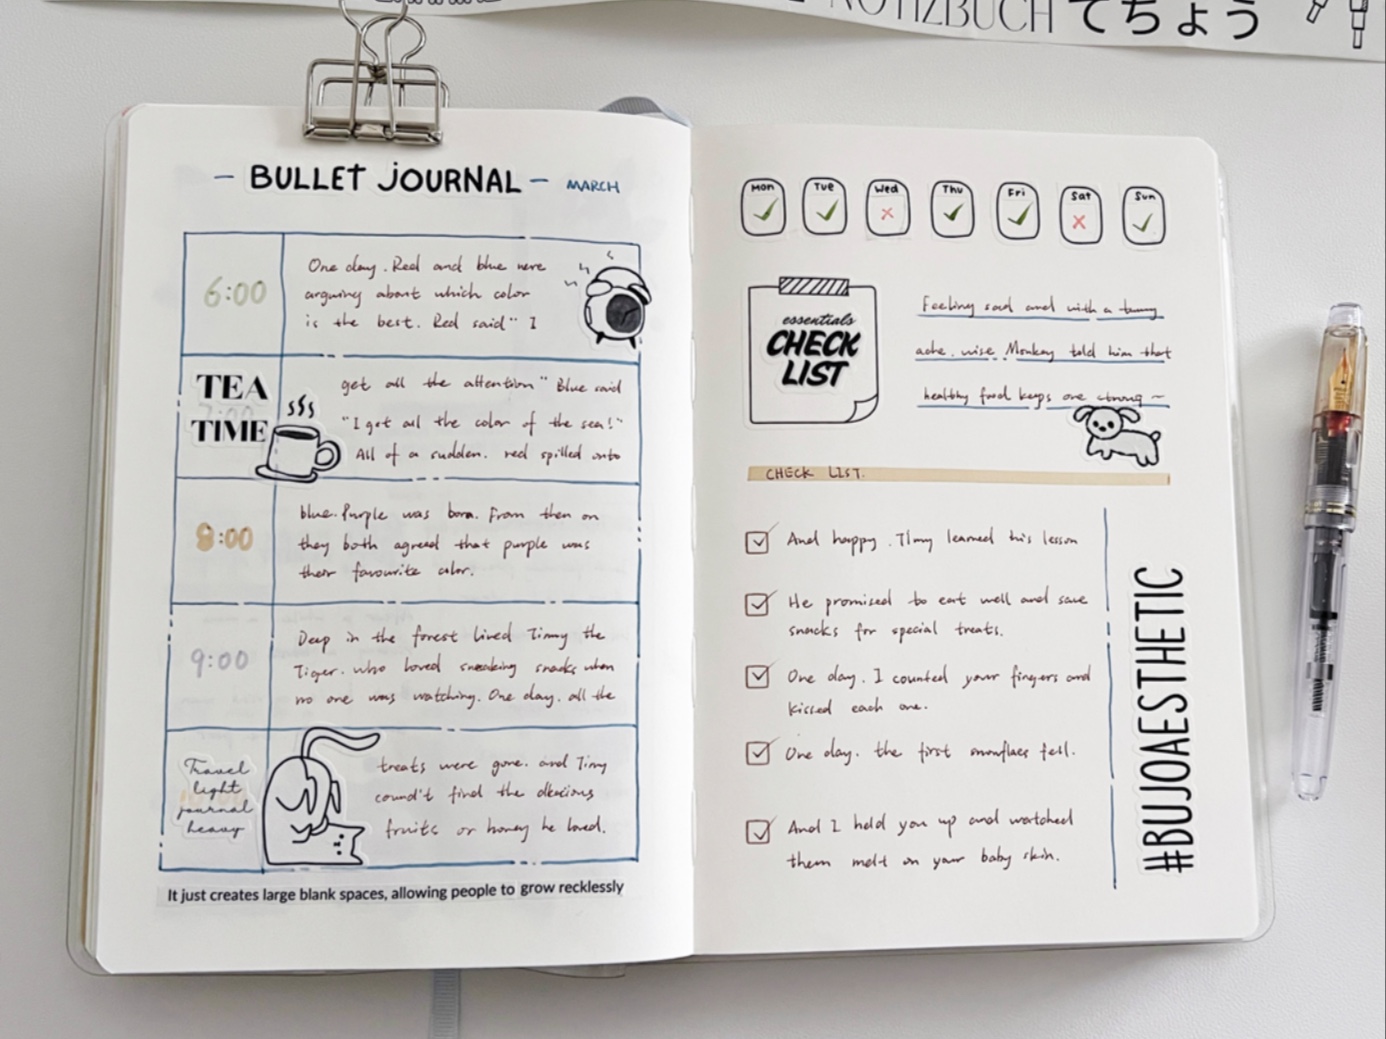 NOTIZBUCH てちょう
- BULLET JOURNAL - MARCH
6:00
One day. Red and blue were
arguing about which color
is the best. Red said " I
TEA
7:00
TIME
get all the attention" Blue said
"I got all the color of the sea!"
All of a sudden. red spilled onto
8:00
blue. Purple was born. From then on
they both agreed that purple was
their favourite color.
9:00
Deep in the forest lived Timmy the
Tiger. who loved sneaking snacks when
no one was watching. One day. all the
Travel
light
journal
heavy
treats were gone. and Timy
cound't find the
fruits or honey he loved.
It just creates large blank spaces, allowing people to grow recklessly
Mon Tue Wed Thu Fri Sat Sun
essentials
CHECK
LIST
Feeling sad and with a tummy
ache. wise Monkey told him that
healthy food keeps one strong ~
CHECK LIST.
And happy. Timy learned his lesson
He promised to eat well and save
snacks for special treats.
One day. I counted your fingers and
kissed each one.
One day. the first fell.
And I held you up and watched
them melt on your baby skin.
#BUJOAESTHETIC